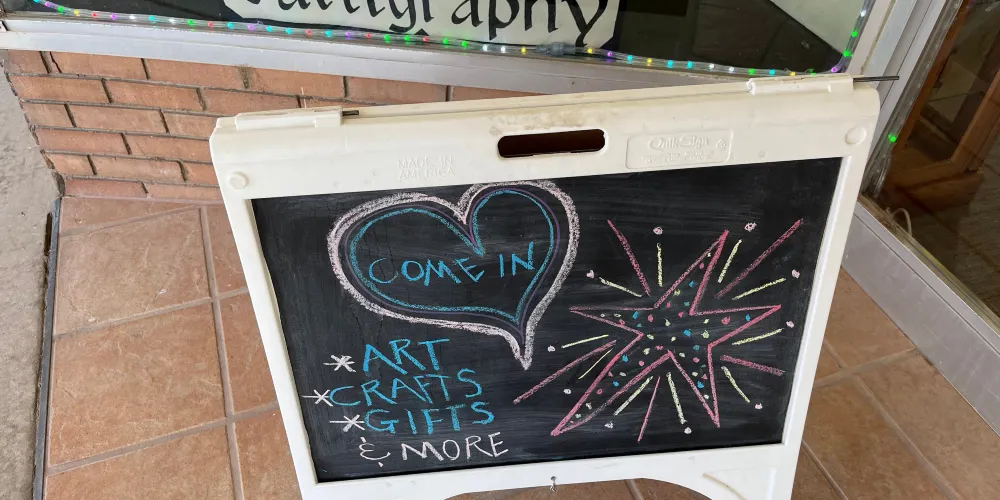 Calligraphy
MADE IN
AMERICA
QuikSign
COME IN
*ART
*CRAFTS
*GIFTS
& MORE